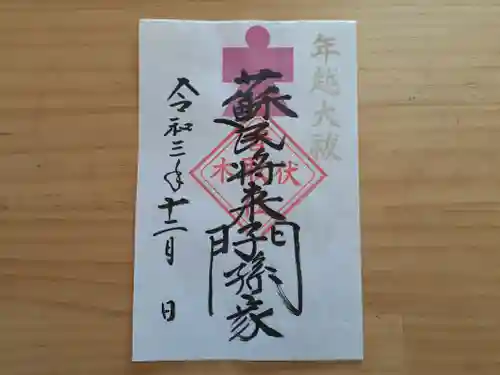 年越大祓
蘇民将来子孫家門
伏木
令和三年十二月 日